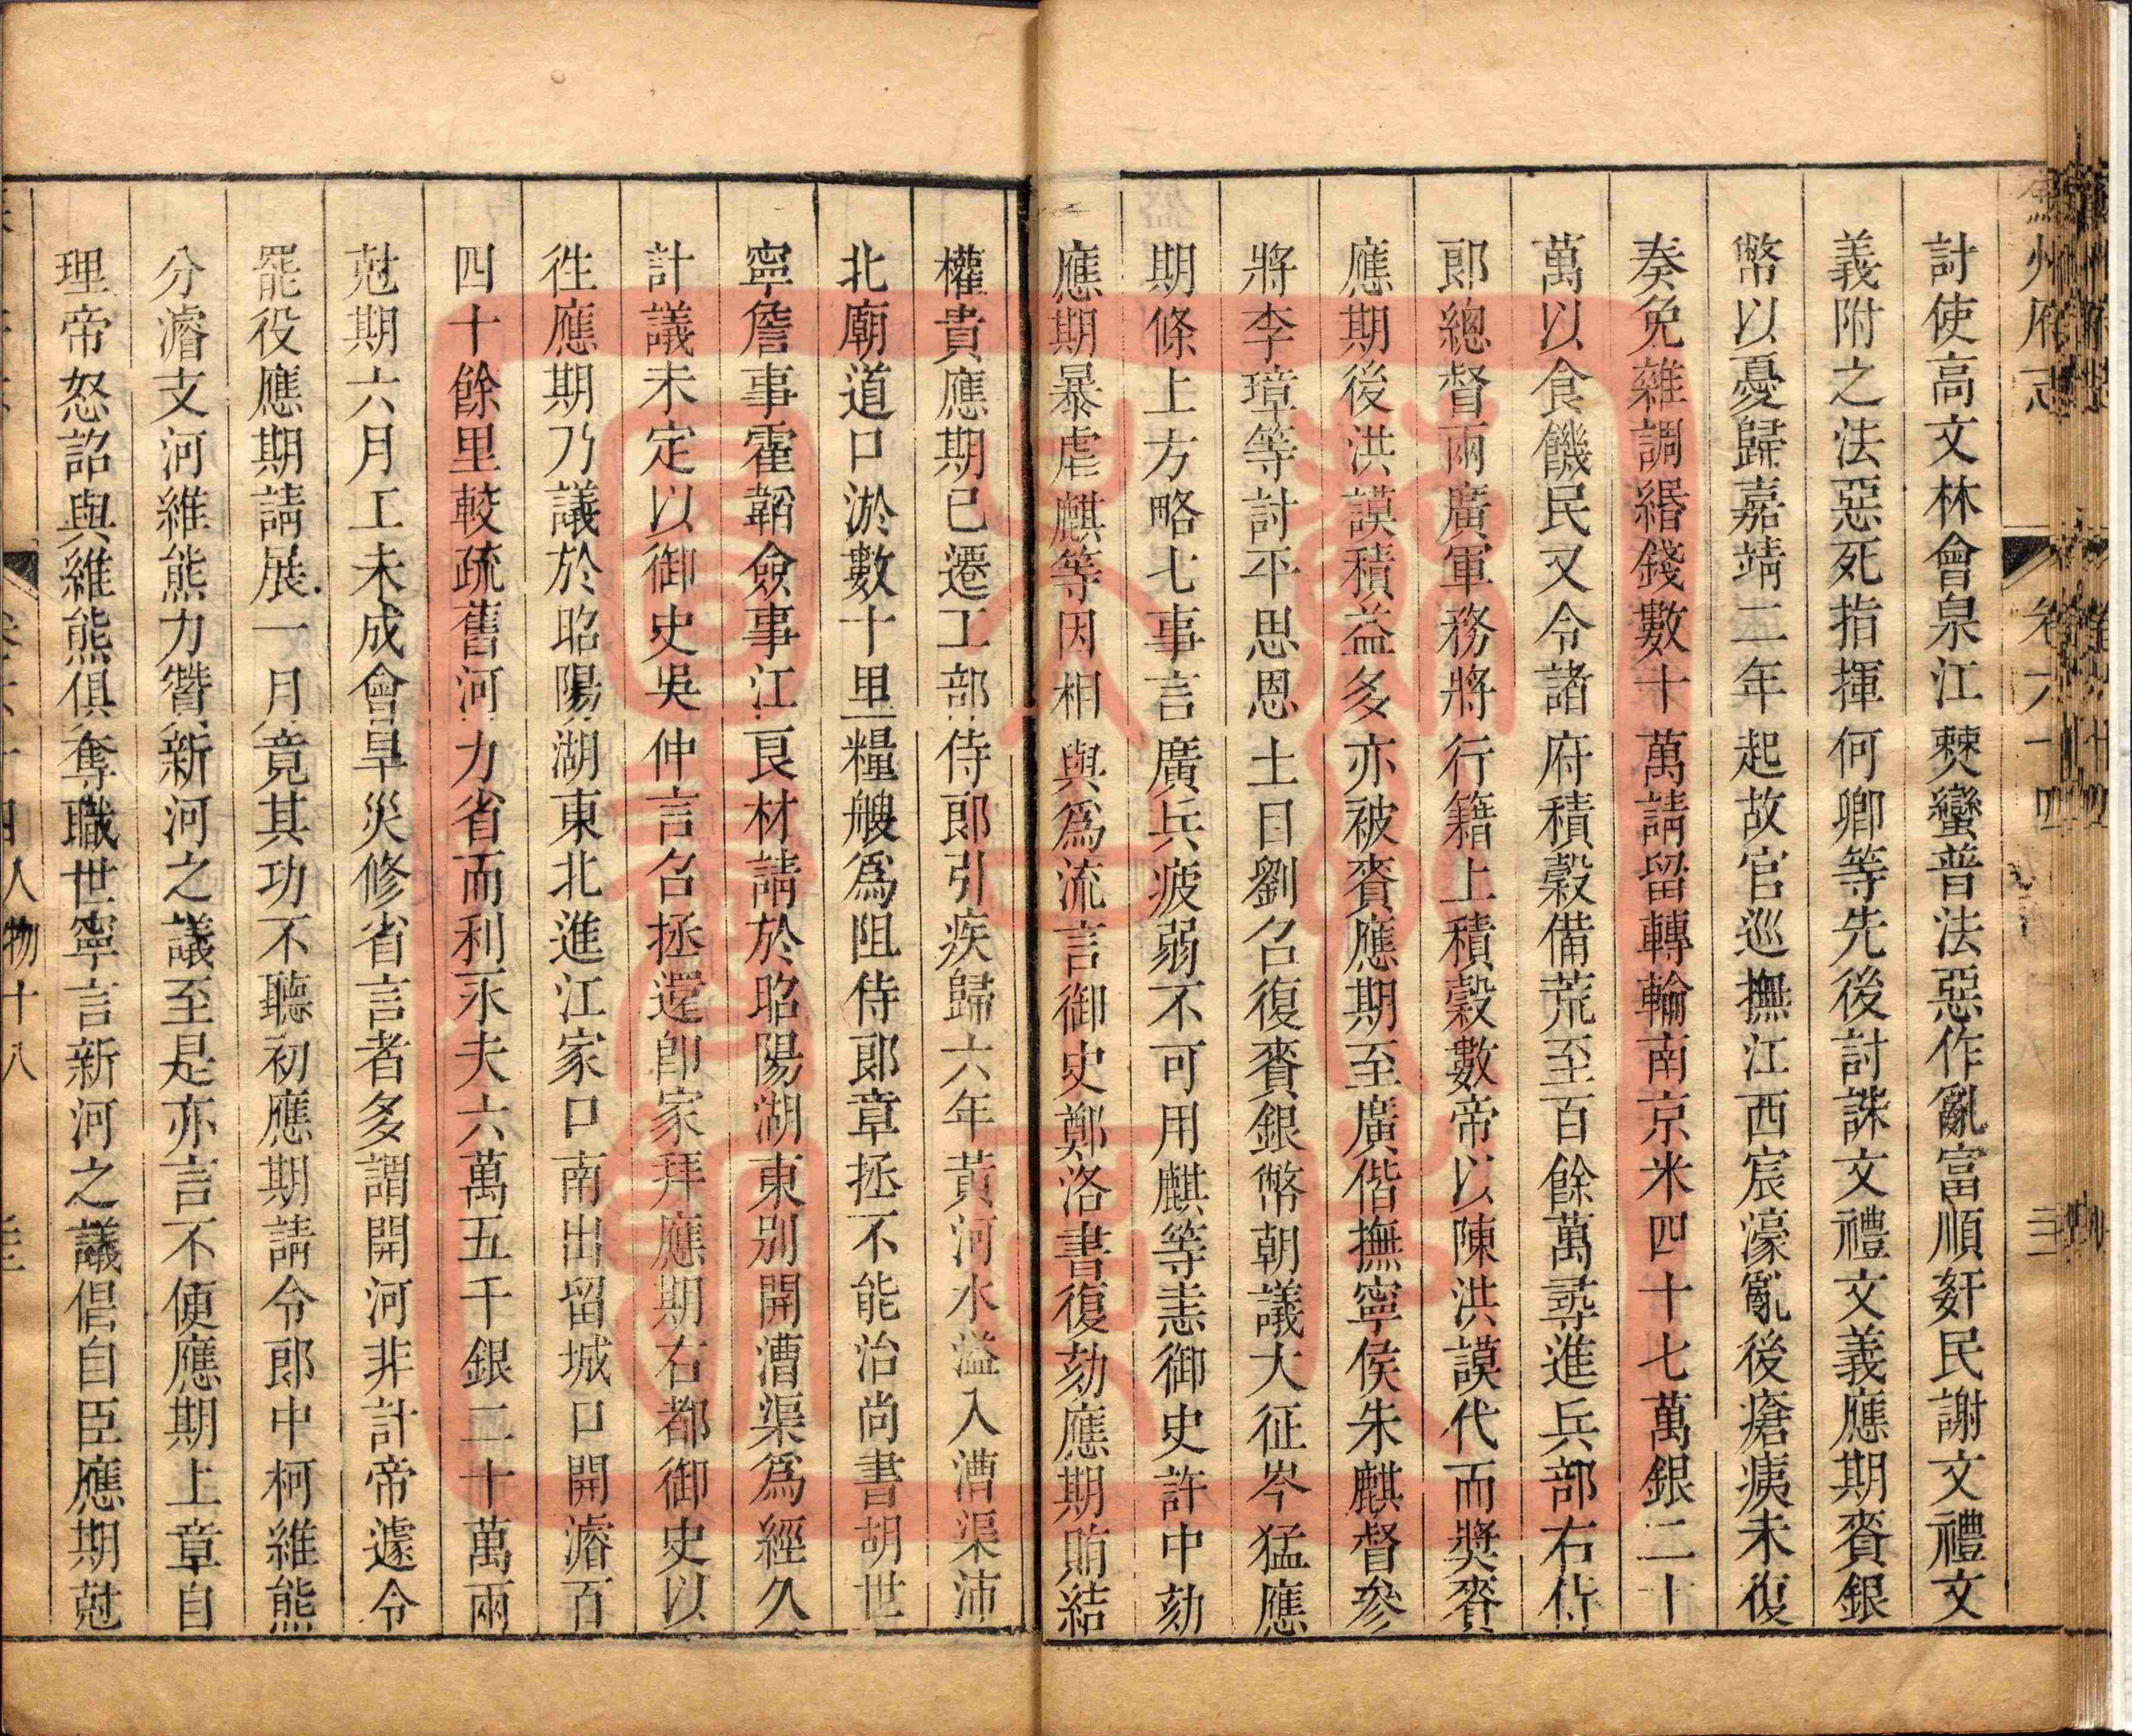 討使高文林會泉江僰蠻普法惡作亂富順奸民謝文禮文
義附之法惡死指揮何卿等先後討誅文禮文義應期賚銀
幣以憂歸嘉靖二年起故官巡撫江西宸濠亂後瘡痍未復
奏免雜調緡錢數十萬請留轉輸南京米四十七萬銀二十
萬以食饑民又令諸府積穀備荒至百餘萬尋進兵部右侍
郎總督兩廣軍務將行籍上積穀數帝以陳洪謨代而獎賚
應期後洪謨積益多亦被賚應期至廣偕撫寧侯朱麒督參
將李璋等討平思恩土目劉召復賚銀幣朝議大征岑猛應
期條上方略七事言廣兵疲弱不可用麒等恚御史許中劾
應期暴虐麒等因相與爲流言御史鄭洛書復劾應期賄結
權貴應期已遷工部侍郎引疾歸六年黃河水溢入漕渠沛
北廟道口淤數十里糧艘爲阻侍郎章拯不能治尚書胡世
寧詹事霍韜僉事江良材請於昭陽湖東别開漕渠爲經久
計議未定以御史吳仲言召拯還卽家拜應期右都御史以
徃應期乃議於昭陽湖東北進江家口南出留城口開濬百
四十餘里較疏舊河力省而利永夫六萬五千銀二十萬兩
尅期六月工未成會旱災修省言者多謂開河非計帝遽令
罷役應期請展一月竟其功不聽初應期請令郎中柯維熊
分濬支河維熊力贊新河之議至是亦言不便應期上章自
理帝怒詔與維熊俱奪職世寧言新河之議倡自臣應期尅
人物十八